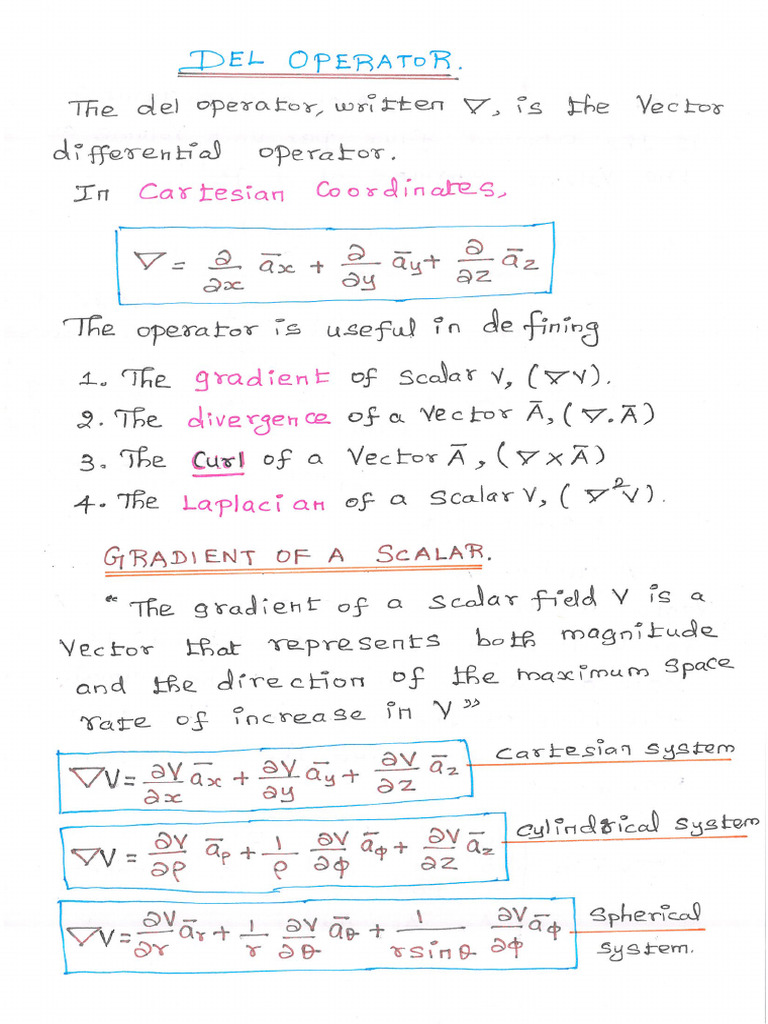 DEL OPERATOR.
The del operator, written ∇, is the Vector
differential operator.
In Cartesian Coordinates,
∇ = ∂/∂x āx + ∂/∂y āy + ∂/∂z āz
The operator is useful in defining
1. The gradient of scalar V, (∇V).
2. The divergence of a vector Ā, (∇.Ā)
3. The Curl of a Vector Ā, (∇ × Ā)
4. The Laplacian of a scalar V, (∇²V).
GRADIENT OF A SCALAR.
"The gradient of a scalar field V is a
Vector that represents both magnitude
and the direction of the maximum space
rate of increase in V"
∇V = ∂V/∂x āx + ∂V/∂y āy + ∂V/∂z āz Cartesian system
∇V = ∂V/∂ρ āρ + 1/ρ ∂V/∂φ āφ + ∂V/∂z āz Cylindrical system
∇V = ∂V/∂r ār + 1/r ∂V/∂θ āθ + 1/r sinθ ∂V/∂φ āφ Spherical
system.